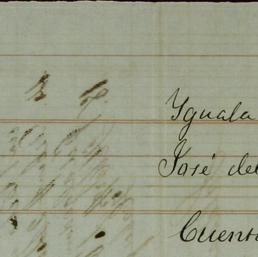 Yguala
José del
Cuent